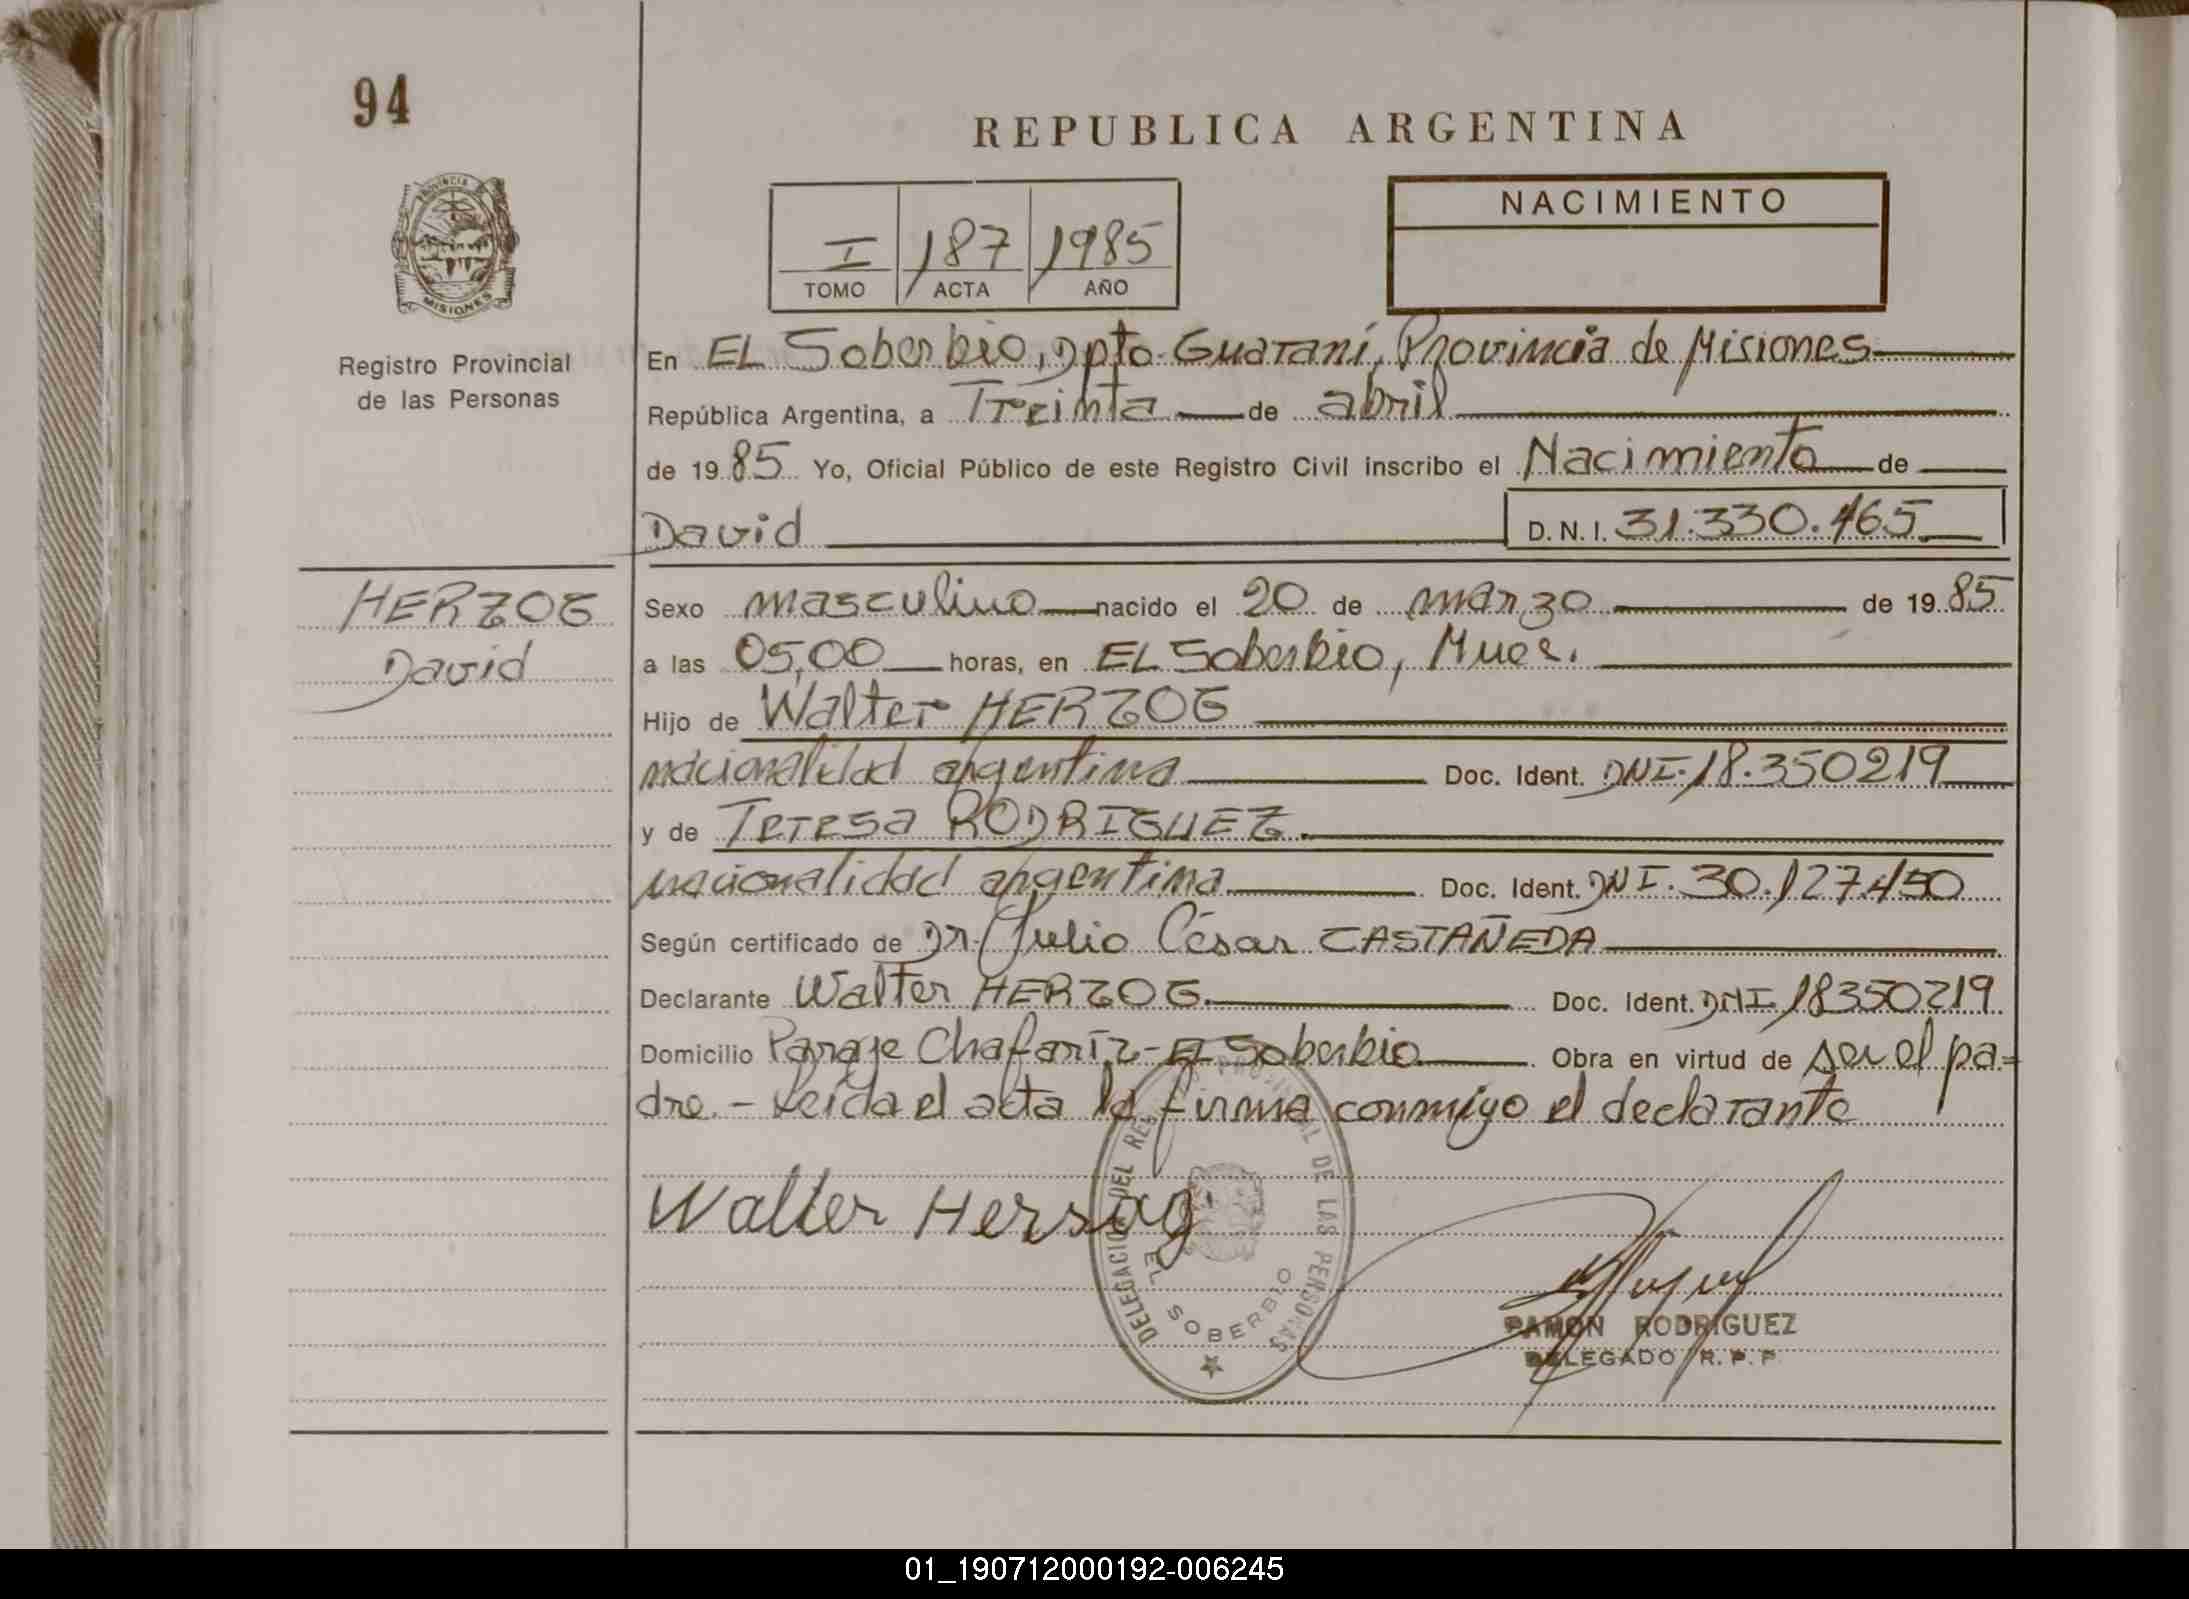 94
REPUBLICA ARGENTINA
PROVINCIA DE
MISIONES
Registro Provincial
de las Personas
I 187 1985
TOMO ACTA AÑO
NACIMIENTO
En EL Soberbio, Dpto. Guaraní, Provincia de Misiones
República Argentina, a Treinta de abril
de 1985 Yo, Oficial Público de este Registro Civil inscribo el Nacimiento de
David D.N.I. 31.330.465
HERZOG
David
Sexo masculino nacido el 20 de marzo de 1985
a las 05,00 horas, en EL Soberbio, Mnes.
Hijo de Walter HERZOG
nacionalidad argentina Doc. Ident. DNI. 18.350219
y de Teresa RODRIGUEZ.
nacionalidad argentina Doc. Ident. DNI. 30.127.450
Según certificado de Dr. Julio César CASTAÑEDA
Declarante Walter HERZOG. Doc. Ident. DNI 18350219
Domicilio Paraje Chafaríz - El Soberbio. Obra en virtud de ser el pa=
dre. - Leída el acta la firma conmigo el declarante
Walter Herzog
DELEGACION DEL REG. PROVINCIAL DE LAS PERSONAS
EL SOBERBIO
RAMON RODRIGUEZ
DELEGADO R.P.P.
01_190712000192-006245